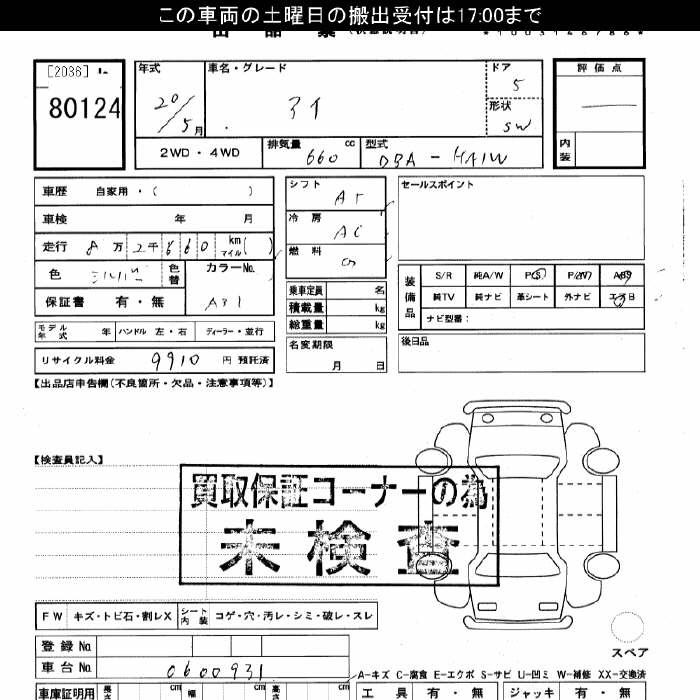 この車両の土曜日の搬出受付は17:00まで
[2036]
80124
年式
20/5月
車名・グレード
アイ
ドア
5
形状
SW
評価点
内装
2WD・4WD
排気量 660 cc
型式 DBA-HA1W
車歴 自家用・( )
車検 年 月
走行 8万2千660 km マイル( )
色 シルバー 色替
カラーNo. A31
保証書 有・無
シフト AT
冷房 AC
燃料
乗車定員 名
積載量 kg
総重量 kg
セールスポイント
装備品
S/R 純A/W P(S) P/W ABS
純TV 純ナビ 革シート 外ナビ エアB
ナビ型番:
モデル年式 年 ハンドル 左・右 ディーラー・並行
名変期限 月 日
後日品
リサイクル料金 9910 円 預託済
【出品店申告欄(不良箇所・欠品・注意事項等)】
【検査員記入】
買取保証コーナーの為
未検査
FW キズ・トビ石・割レX シート内装 コゲ・穴・汚レ・シミ・破レ・スレ
登録No.
車台No. 0600931
スペア
A-キズ C-腐食 E-エクボ S-サビ U-凹ミ W-補修 XX-交換済
車庫証明用 長さ cm 幅 cm 高さ cm
工具 有・無 ジャッキ 有・無